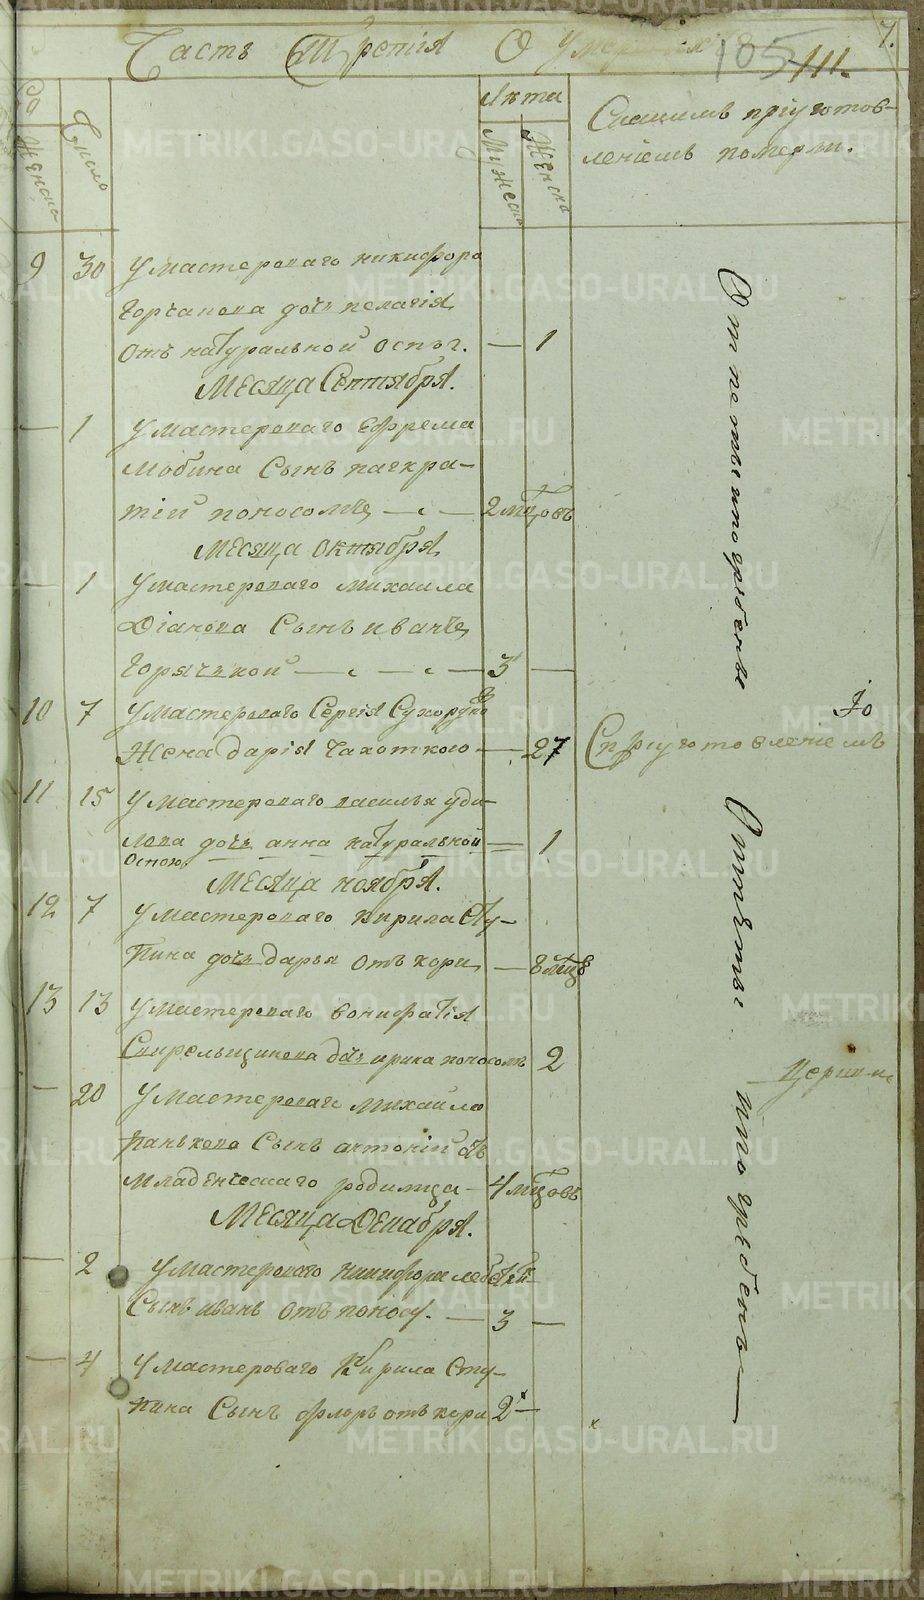 Часть Третія О умершихъ
105
111.
7.
Женска
Число
Лѣта
Мужеска
Женска
Съ какимъ пріуготов-
леніемъ померли.
9 30 У мастероваго никифора
Горчакова дочь пелагія
отъ натуральной оспы. — 1
Месяца Сентября.
— 1 У мастероваго Ефрема
Мобина Сынъ панкра-
тій поносомъ — 2 мцовъ
Месяца октября
— 1 У мастероваго михаила
Діанова Сынъ иванъ
горячкой — 3 —
10 7 У мастероваго Сергія Сухоруко
Жена дарія Чахоткою — 27 С пріуготовленіемъ
11 15 У мастероваго василья уди-
лова дочь анна натуральной — 1
оспою
Месяца ноября.
12 7 У мастероваго кирила Сту-
пина дочь дарья отъ кори — 8 мцов
13 13 У мастероваго вонифатія
Свирельщикова дочь ирина поносомъ 2
— 20 У мастероваго михаила
панькова Сынъ антоній отъ
младенческаго родимца — 4 мцовъ
Месяца Декабря.
— 2 У мастероваго никифора
Сынъ иванъ отъ поносу. — 3 —
— 4 У мастероваго Кирила Сту-
пина Сынъ флоръ отъ кори 2 —